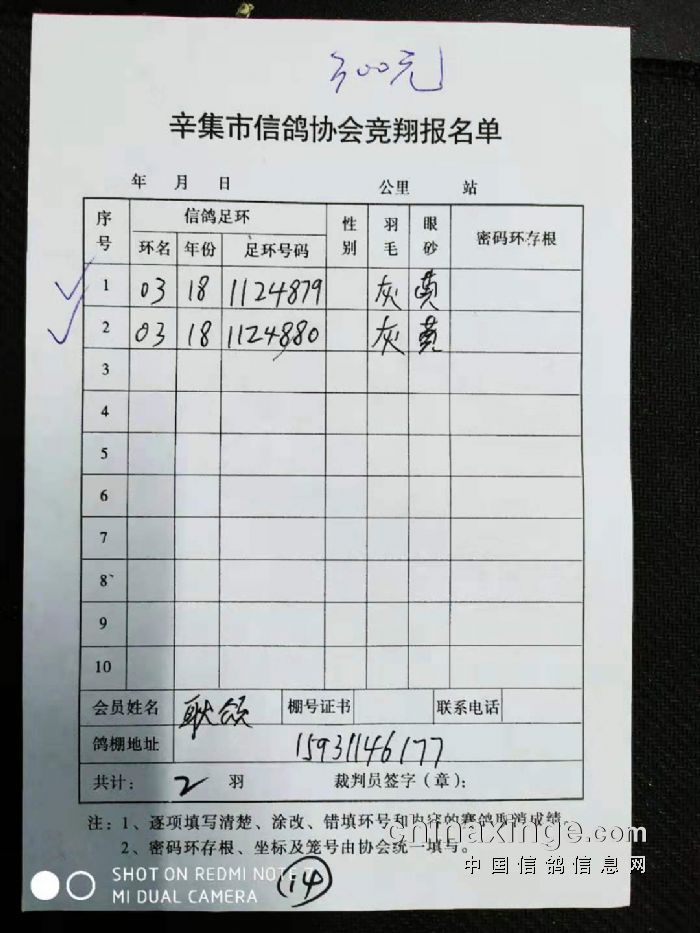 300元
辛集市信鸽协会竞翔报名单
年 月 日 公里 站
序号 信鸽足环 性别 羽毛 眼砂 密码环存根
环名 年份 足环号码
1 03 18 1124879 灰 黄
2 03 18 1124880 灰 黄
3
4
5
6
7
8
9
10
会员姓名 耿领 棚号证书 联系电话
鸽棚地址 15931146177
共计: 2 羽 裁判员签字(章):
注: 1、逐项填写清楚、涂改、错填环号和内容的赛鸽取消成绩。
2、密码环存根、坐标及笼号由协会统一填写。
chinaxinge.com
中国信鸽信息网
SHOT ON REDMI NOTE
MI DUAL CAMERA
14